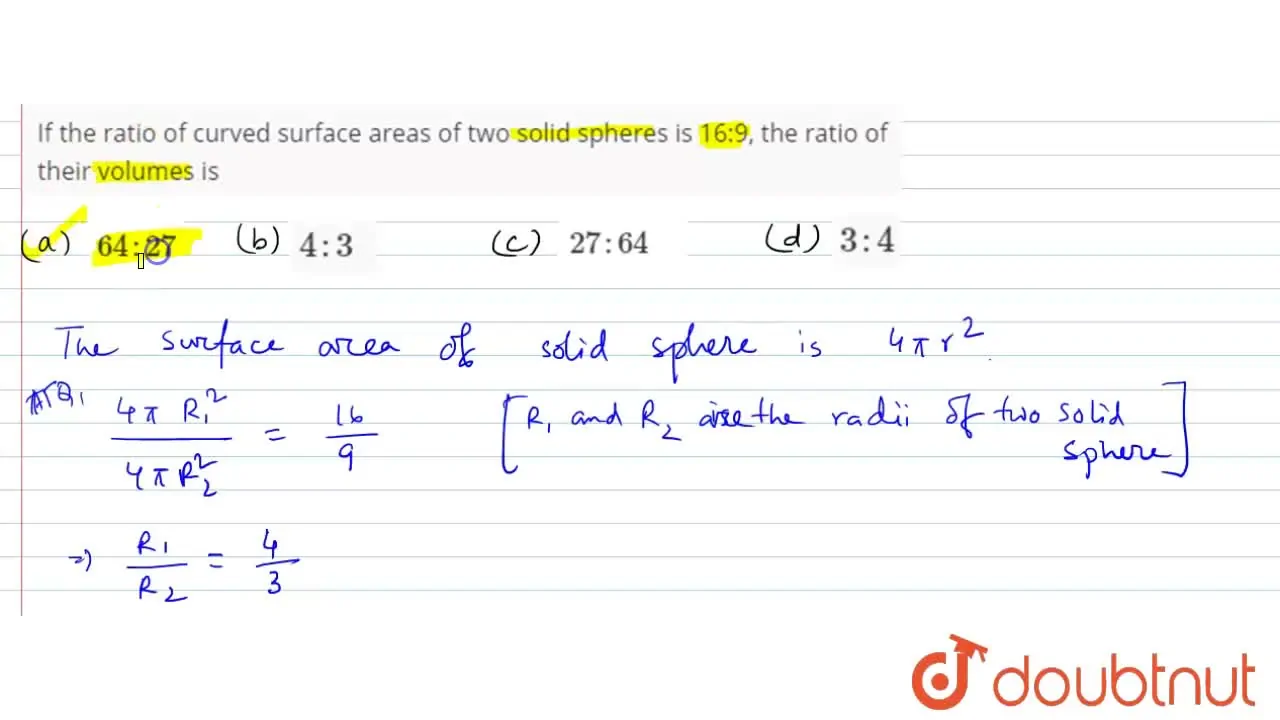 If the ratio of curved surface areas of two solid spheres is 16:9, the ratio of
their volumes is
(a) 64:27 (b) 4:3 (c) 27:64 (d) 3:4
The surface area of solid sphere is 4πr².
ATQ,
4πR₁² / 4πR₂² = 16/9 [R₁ and R₂ are the radii of two solid
sphere]
=> R₁/R₂ = 4/3
doubtnut